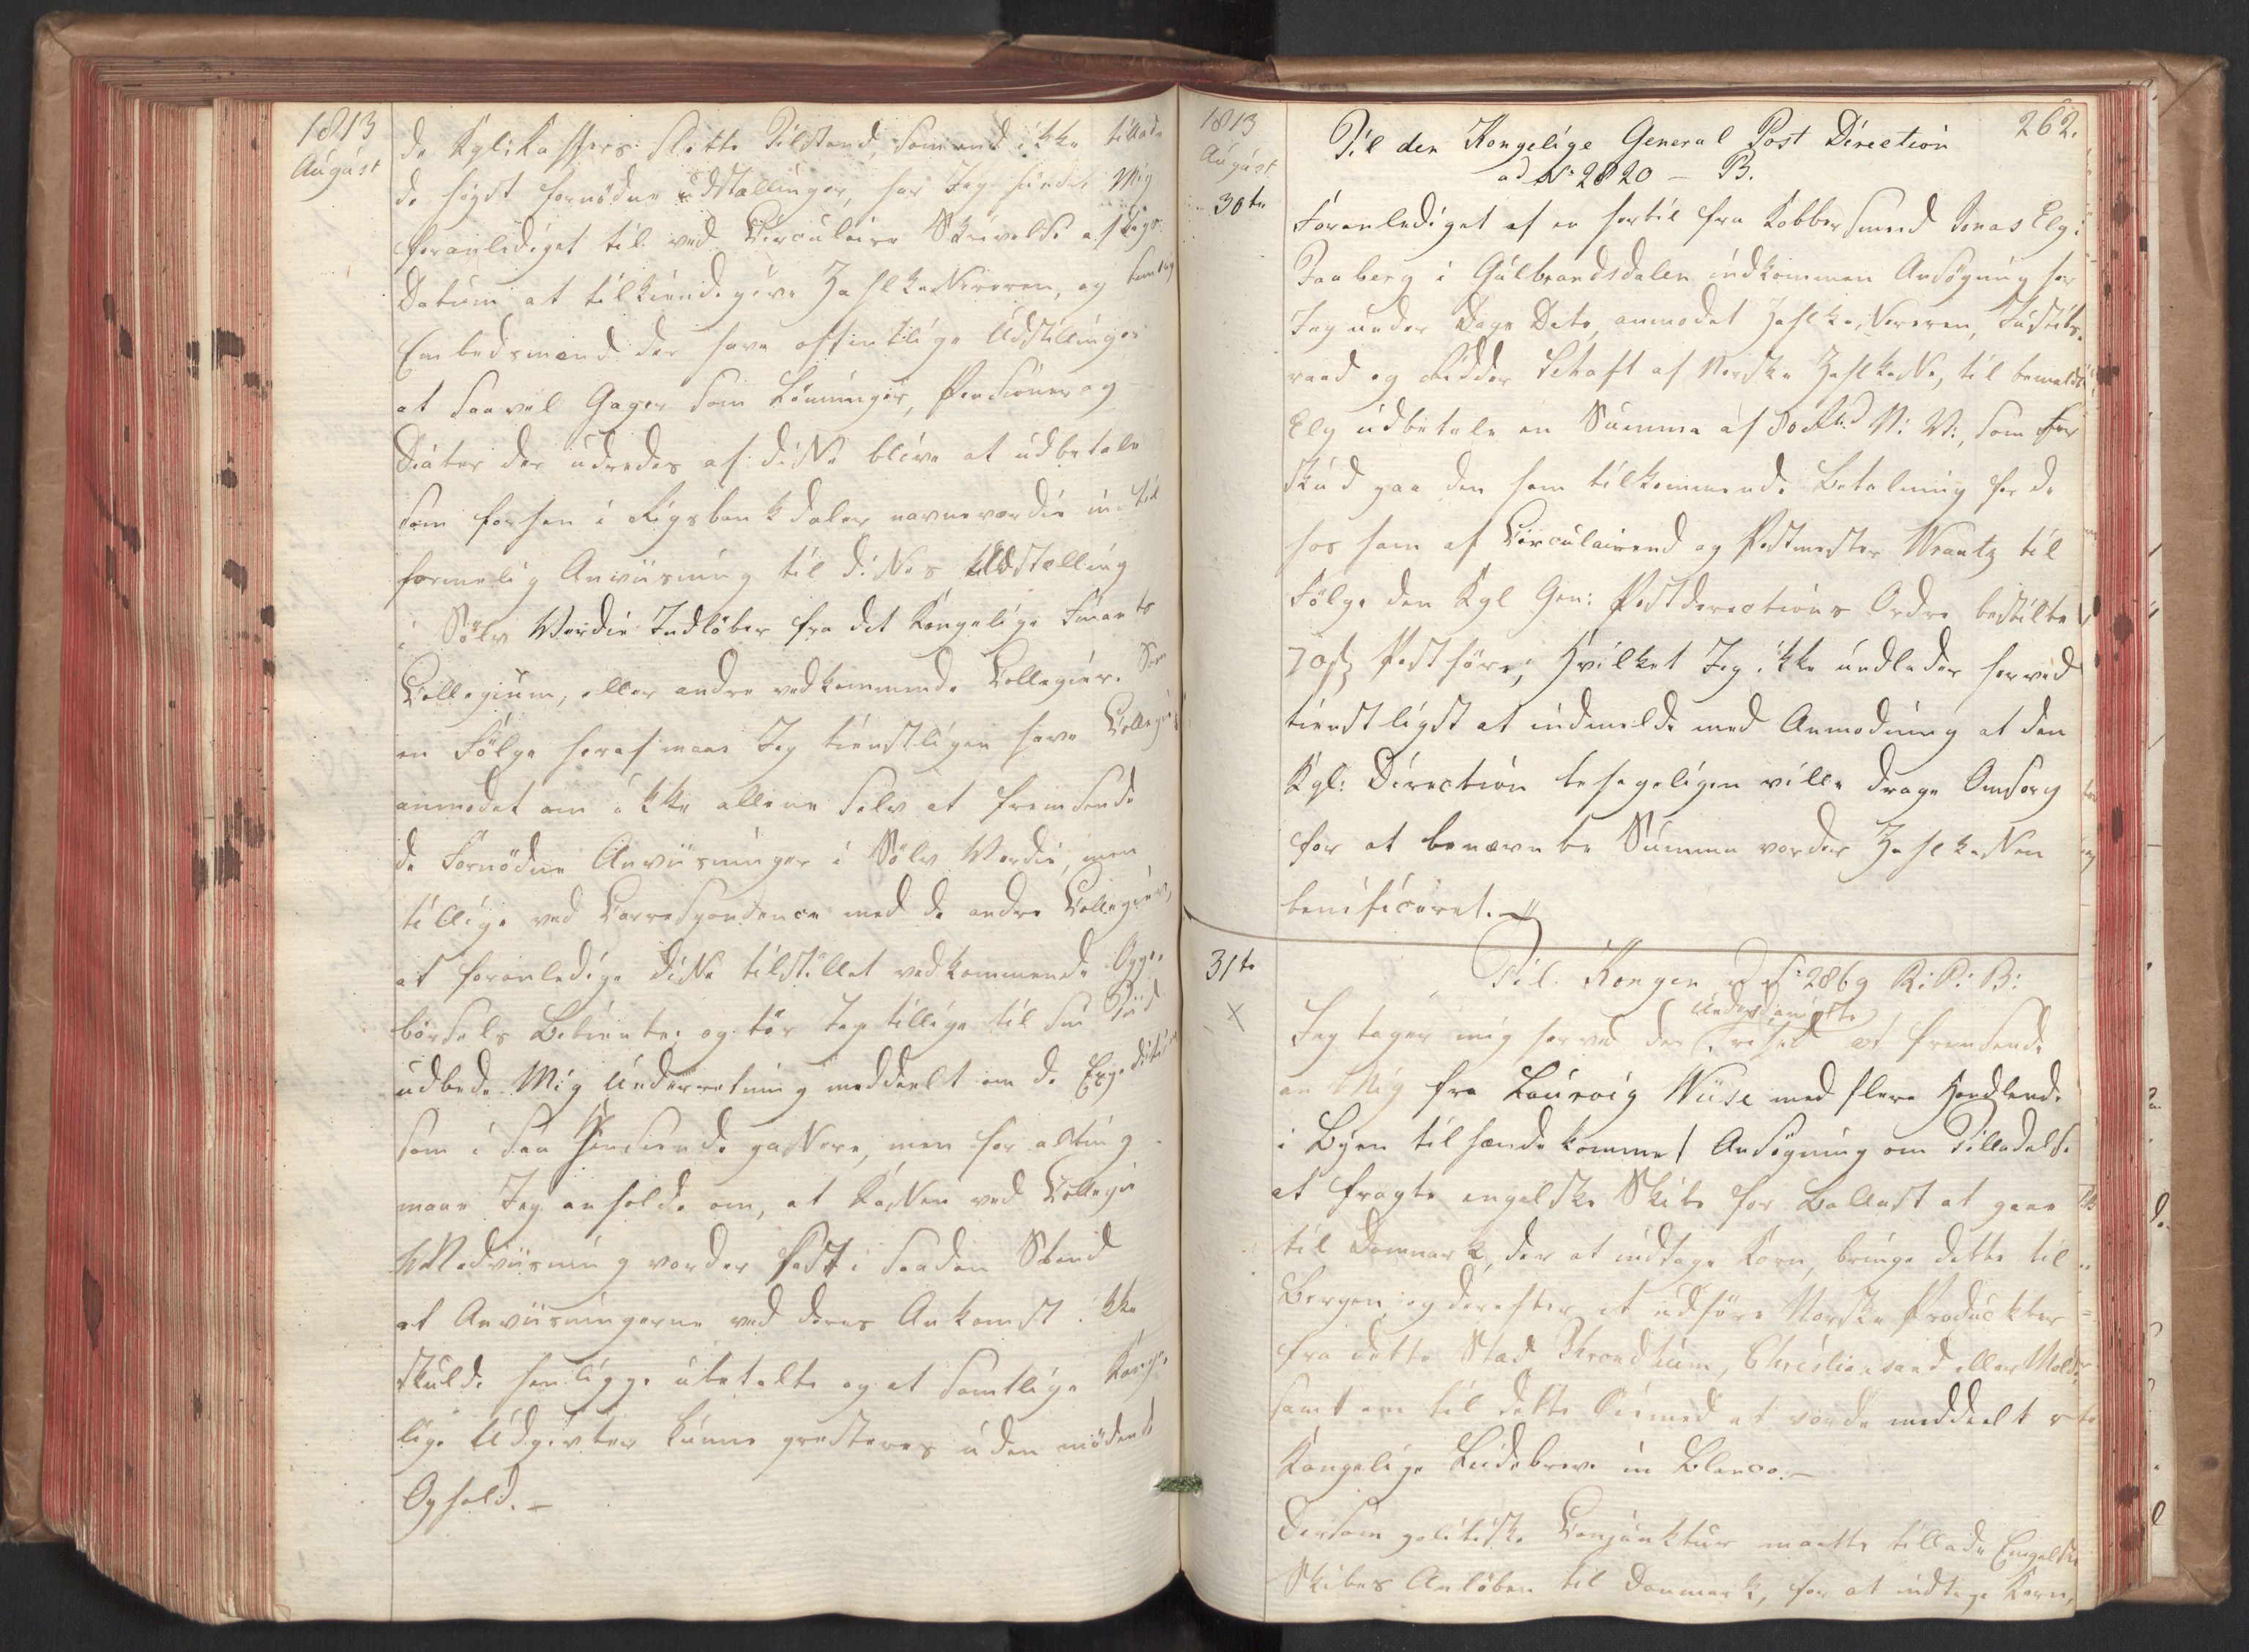 1813
August
de Kgl: Kassers slette Tilstand, som end ikke tillade
de høyst fornødne udstællinger, har Jeg fundet Mig
foranlediget til ved Circulaire Skrivelse af Dags
Datum at tilkiendegive Zahlkassereren, og samtlig
Embedsmænd der have offentlige Udstillinger
at saavel Gager som Lønninger, Pensioner og
Diæter der udredes af disse blive at udbetale
som forhen i Rigsbankdaler navneværdie indtil
formelig Anviisning til disses Udstælling
i Sølv Værdie Indløber fra det Kongelige Finants
Collegium, eller andre vedkommende Collegier. Som
en Følge heraf maae Jeg tienstligen have Collegiet
anmodet om ikke allene selv at fremsende
de Fornødne Anviisninger i Sølv Værdie, men
tillige ved Correspondence med de andre Collegier,
at foranledige disse tilstillet vedkommende Oppe-
børsels Betiente; og tør Jeg tillige til sin Tiid
udbede Mig Underretning meddeelt om de Expeditioner
som i saa Henseende passere, men for alting
maae Jeg anholde om, at Kassen ved Collegii
Medviisning vorder sadt i saadan Stand
at Anviisningerne ved deres Ankomst ikke
skulde henligge ubetalte og at samtlige Konge-
lige Udgivter kunne præsteres uden mødende
Ophold. –
1813
August
262.
30te
Til den Kongelige General Post Direction
ad No 2820 – B.
Foranlediget af en hertil fra Kobbersmed Jonas Ely i
Faaberg i Gulbrandsdalen indkommen Ansøgning har
Jeg under Dags Dato, anmodet Zahlkasserern, Justits-
raad og Ridder Schaft af Norske Zahlkasse, til bemeldte
Ely udbetale en Summa af 80 Rbd N: V:, som for
skud paa den ham tilkommende Betaling for de
hos ham af og Postmester Wrantz til
Følge den Kgl Gen: Postdirections Ordre bestilte
70 Posthorn; hvilket Jeg ikke undlader herved
tienstligst at indmelde med Anmodning at den
Kgl: Direction behageligen ville drage Omsorg
for at benævnte Summa vorder Zahlkassen
beneficeret. –
31te
X
Til Kongen ad No 2869 R: P: B:
Jeg tager mig herved den underdanigste Frihed at fremsende
en Mig fra Laurvig Wiise med flere Handlende
i Byen tilhænde kommet Ansøgning om Tilladelse
at fragte engelske Skibe for Ballast at gaae
til Danmark, der at indtage Korn, bringe dette til
Bergen, og derefter at udføre Norske Produckter
fra dette Stæd Throndhiem, Christiansand eller Molde
samt om til dette Øiemed at vorde meddeelt
Kongelige Leidebreve in Blanco. –
Dersom politiske Conjunktur maatte tillade Engelske
Skibes Anløben til Danmark, for at indtage Korn,